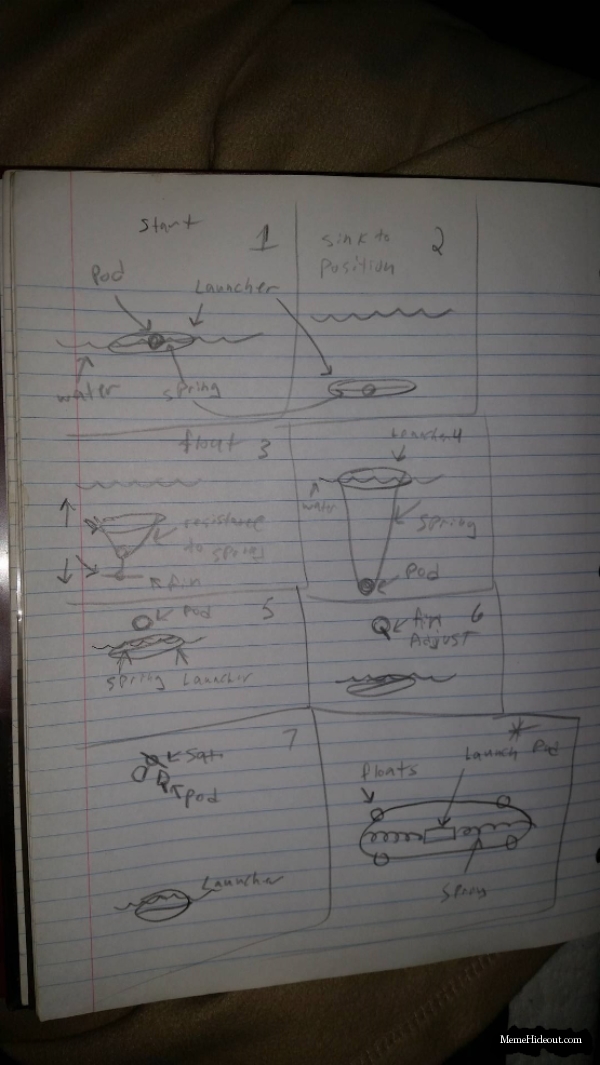 Start 1
Pod
Launcher
water
spring
sink to 2
Position
float 3
resistance
to spring
fin
Launcher 4
water
spring
Pod
5
Pod
spring Launcher
6
Air
ADJUST
7
Sat
Pod
Launcher
*
Launch Pod
floats
spring
MemeHideout.com